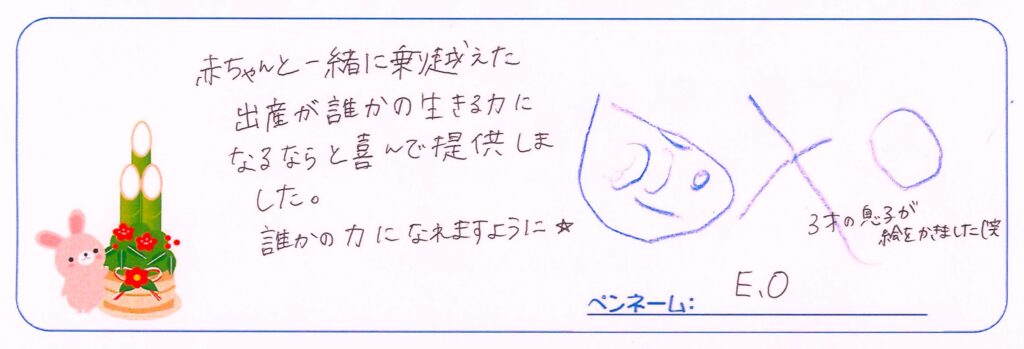 赤ちゃんと一緒に乗り越えた
出産が誰かの生きる力に
なるならと喜んで提供しま
した。
誰かの力になれますように☆
3才の息子が
絵をかきました(笑
ペンネーム: E.O